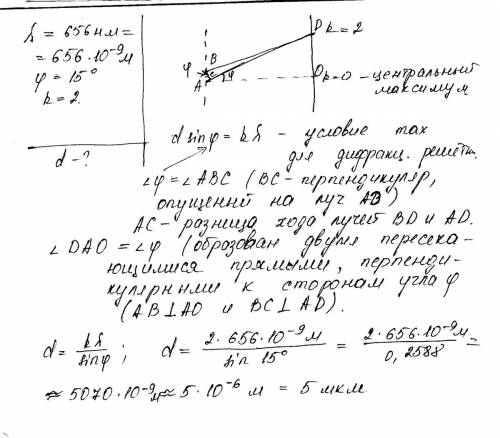 λ = 656 нм =
= 656·10⁻⁹ м
φ = 15°
k = 2.
d - ?
D k = 2
φ B
A C φ
O k=0 - центральный
максимум
d sinφ = kλ - условие max
для дифракц. решетки.
∠φ = ∠ABC (BC - перпендикуляр,
опущенный на луч AB)
AC - разница хода лучей BD и AD.
∠DAO = ∠φ (образован двумя пересека-
ющимися прямыми, перпенди-
кулярными к сторонам угла φ
(AB⊥AO и BC⊥AD).
d = kλ/sinφ ; d = 2·656·10⁻⁹ м/sin 15° = 2·656·10⁻⁹ м/0,2588 =
≈ 5070·10⁻⁹ м ≈ 5·10⁻⁶ м = 5 мкм